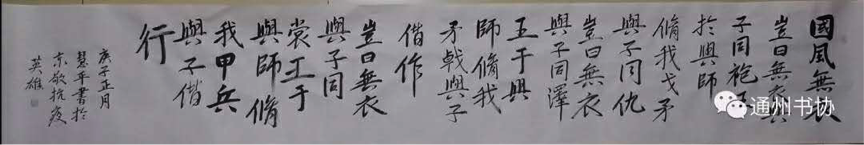 國風無衣
豈曰無衣與
子同袍王
於興師
脩我戈矛
與子同仇
豈曰無衣
與子同澤
王于興
師脩我
矛戟與子
偕作
豈曰無衣
與子同
裳王于
興師脩
我甲兵
與子偕
行
庚子正月
慧平書於
京敬抗疫
英雄
通州书协